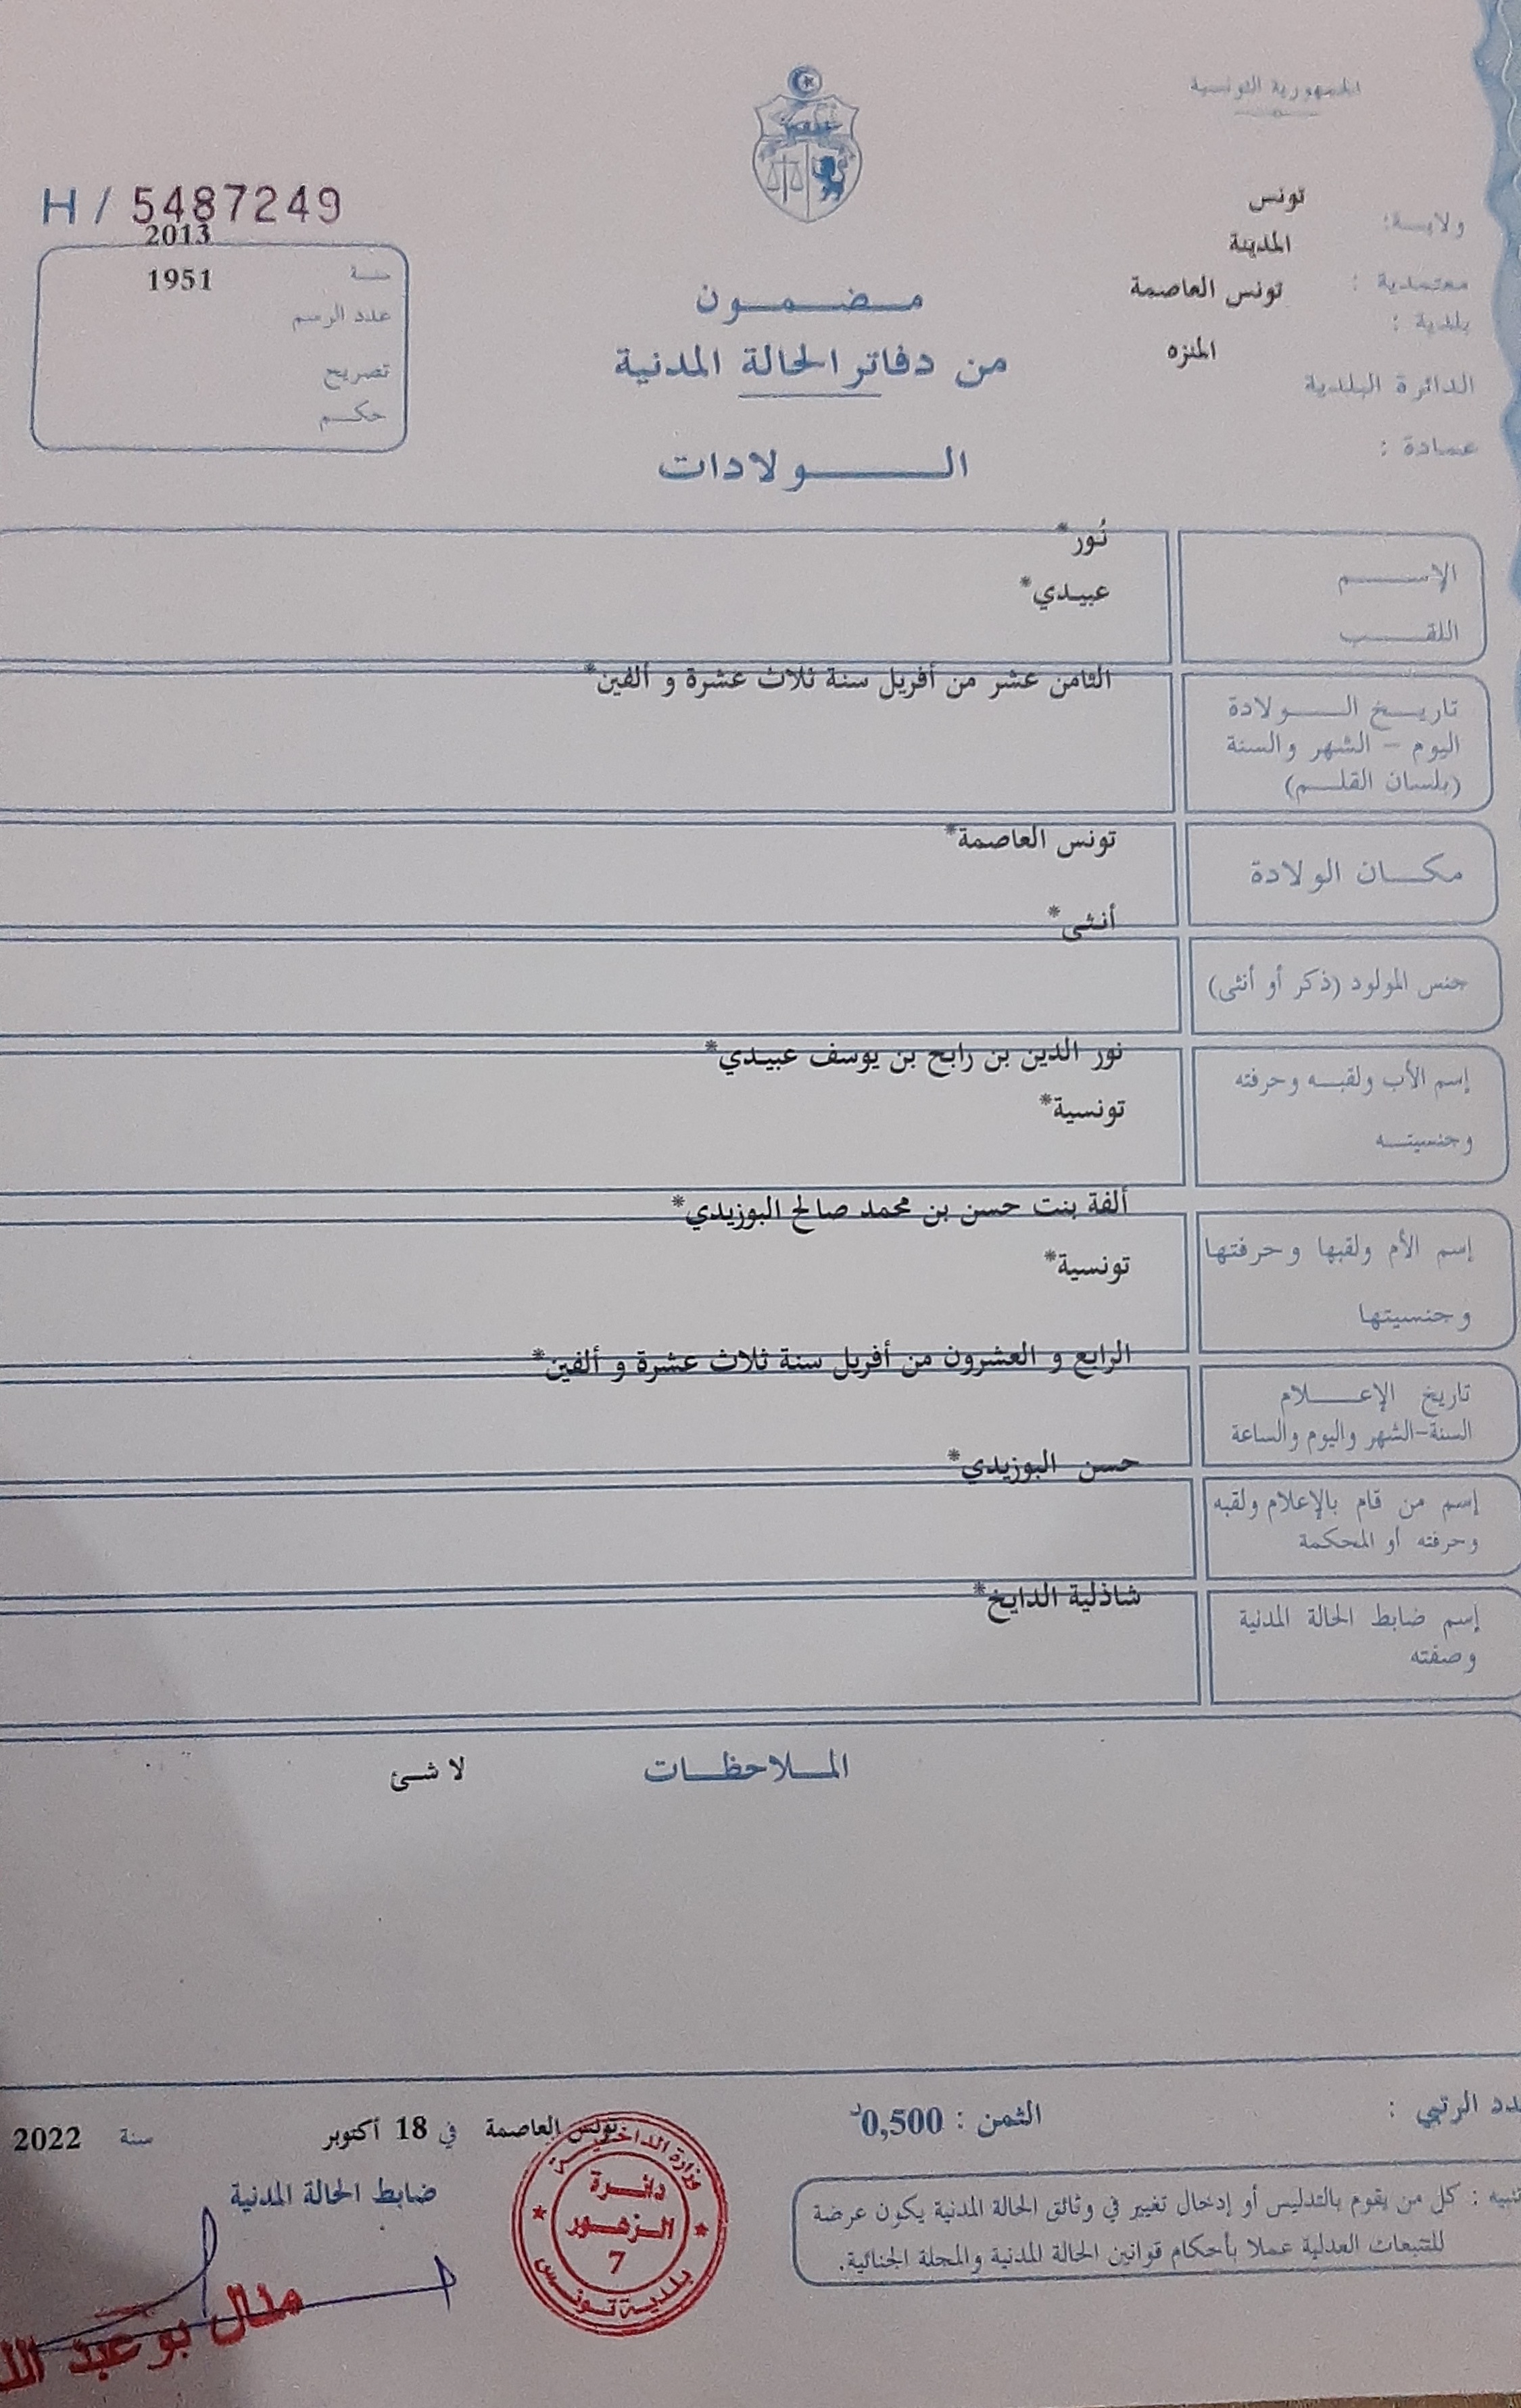 الجمهورية التونسية
ولايـــة: تونس
معتمدية : المدينة
بلدية : تونس العاصمة
الدائرة البلدية المنزه
عمادة :
H / 5487249
سنة 2013
عدد الرسم 1951
تصريح
حكم
مـضـمـون
من دفاتر الحالة المدنية
الـولادات
الإسـم نُور*
اللقـب عبيدي*
تاريـخ الـولادة الثامن عشر من أفريل سنة ثلاث عشرة و ألفين*
اليوم – الشهر والسنة
(بلسان القلـم)
مكـان الولادة تونس العاصمة*
جنس المولود (ذكر أو أنثى) أنثى*
إسم الأب ولقبـه وحرفته نور الدين بن رابح بن يوسف عبيدي*
وجنسيتـه تونسية*
إسم الأم ولقبها وحرفتها ألفة بنت حسن بن محمد صالح البوزيدي*
وجنسيتها تونسية*
تاريخ الإعـلام الرابع و العشرون من أفريل سنة ثلاث عشرة و ألفين*
السنة-الشهر واليوم والساعة
إسم من قام بالإعلام ولقبه حسن البوزيدي*
وحرفته أو المحكمة
إسم ضابط الحالة المدنية شاذلية الدايخ*
وصفته
المـلاحظـات لا شئ
دد الرتبي :
الثمن : 0,500د
تونس العاصمة في 18 أكتوبر سنة 2022
ضابط الحالة المدنية
تنبيه : كل من يقوم بالتدليس أو إدخال تغيير في وثائق الحالة المدنية يكون عرضة
للتتبعات العدلية عملا بأحكام قوانين الحالة المدنية والمجلة الجنائية.
وزارة الداخليـة
دائـرة
الـزهـور
7
بلدية تونـس
منال بوعبد الل